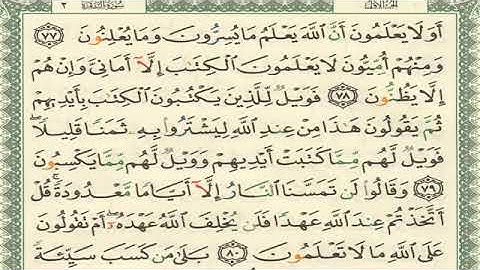 الجزء الأول ٢ سورة البقرة
أَوَلَا يَعْلَمُونَ أَنَّ اللَّهَ يَعْلَمُ مَا يُسِرُّونَ وَمَا يُعْلِنُونَ ٧٧
وَمِنْهُمْ أُمِّيُّونَ لَا يَعْلَمُونَ الْكِتَابَ إِلَّا أَمَانِيَّ وَإِنْ هُمْ
إِلَّا يَظُنُّونَ ٧٨ فَوَيْلٌ لِلَّذِينَ يَكْتُبُونَ الْكِتَابَ بِأَيْدِيهِمْ
ثُمَّ يَقُولُونَ هَذَا مِنْ عِنْدِ اللَّهِ لِيَشْتَرُوا بِهِ ثَمَنًا قَلِيلًا
فَوَيْلٌ لَهُمْ مِمَّا كَتَبَتْ أَيْدِيهِمْ وَوَيْلٌ لَهُمْ مِمَّا يَكْسِبُونَ
٧٩ وَقَالُوا لَنْ تَمَسَّنَا النَّارُ إِلَّا أَيَّامًا مَعْدُودَةً قُلْ
أَتَّخَذْتُمْ عِنْدَ اللَّهِ عَهْدًا فَلَنْ يُخْلِفَ اللَّهُ عَهْدَهُ أَمْ تَقُولُونَ
عَلَى اللَّهِ مَا لَا تَعْلَمُونَ ٨٠ بَلَى مَنْ كَسَبَ سَيِّئَةً